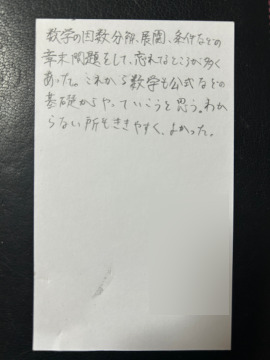 数学の因数分解、展開、条件などの
章末問題をして、忘れてるところが多く
あった。これから数学も公式などの
基礎からやっていこうと思う。わか
らない所もききやすく、よかった。